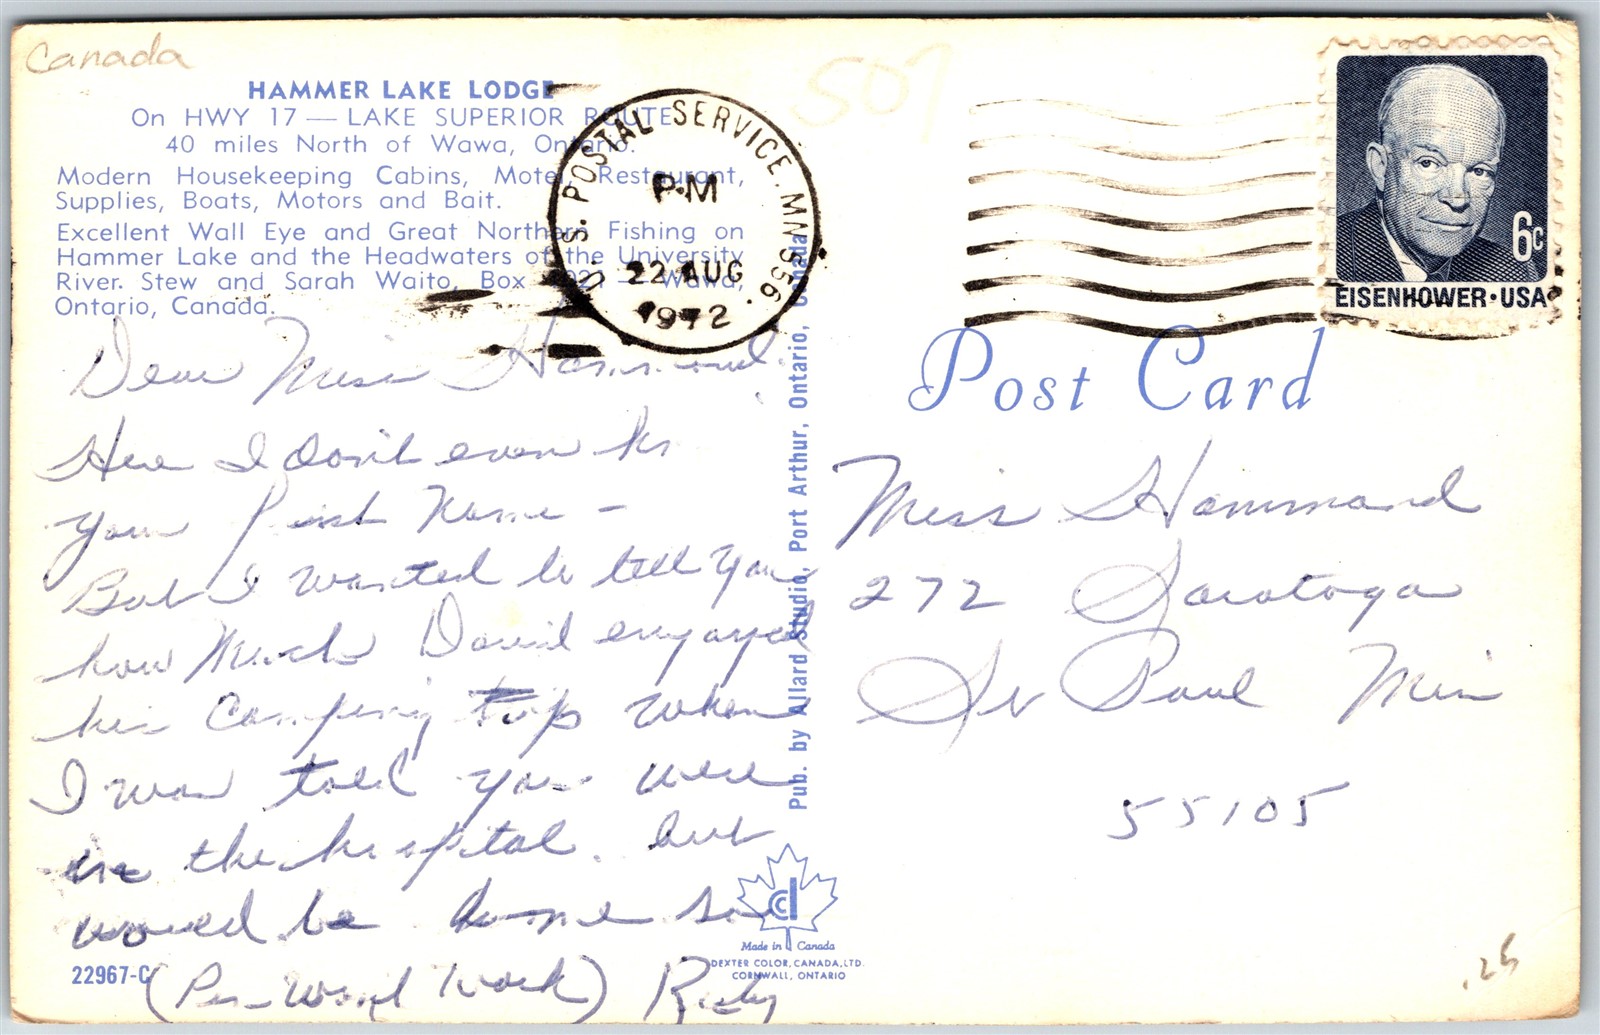 Canada
507
HAMMER LAKE LODGE
On HWY 17 — LAKE SUPERIOR ROUTE
40 miles North of Wawa, Ontario.
Modern Housekeeping Cabins, Motel, Restaurant,
Supplies, Boats, Motors and Bait.
Excellent Wall Eye and Great Northern Fishing on
Hammer Lake and the Headwaters of the University
River. Stew and Sarah Waito, Box — Wawa,
Ontario, Canada.
U.S. POSTAL SERVICE, MN 556
P.M
22 AUG
1972
6c
EISENHOWER·USA
Post Card
Dear Miss Hammond
Here I don't even
your first Name –
But I wanted to tell you
how Much David enjoyed
his Camping trip when
I was told you were
in the hospital. but
would be home
22967-C
Miss Hammond
272 Saratoga
St Paul Min
55105
Pub. by Allard Studio, Port Arthur, Ontario, Canada
cd
Made in Canada
DEXTER COLOR, CANADA, LTD.
CORNWALL, ONTARIO
.25